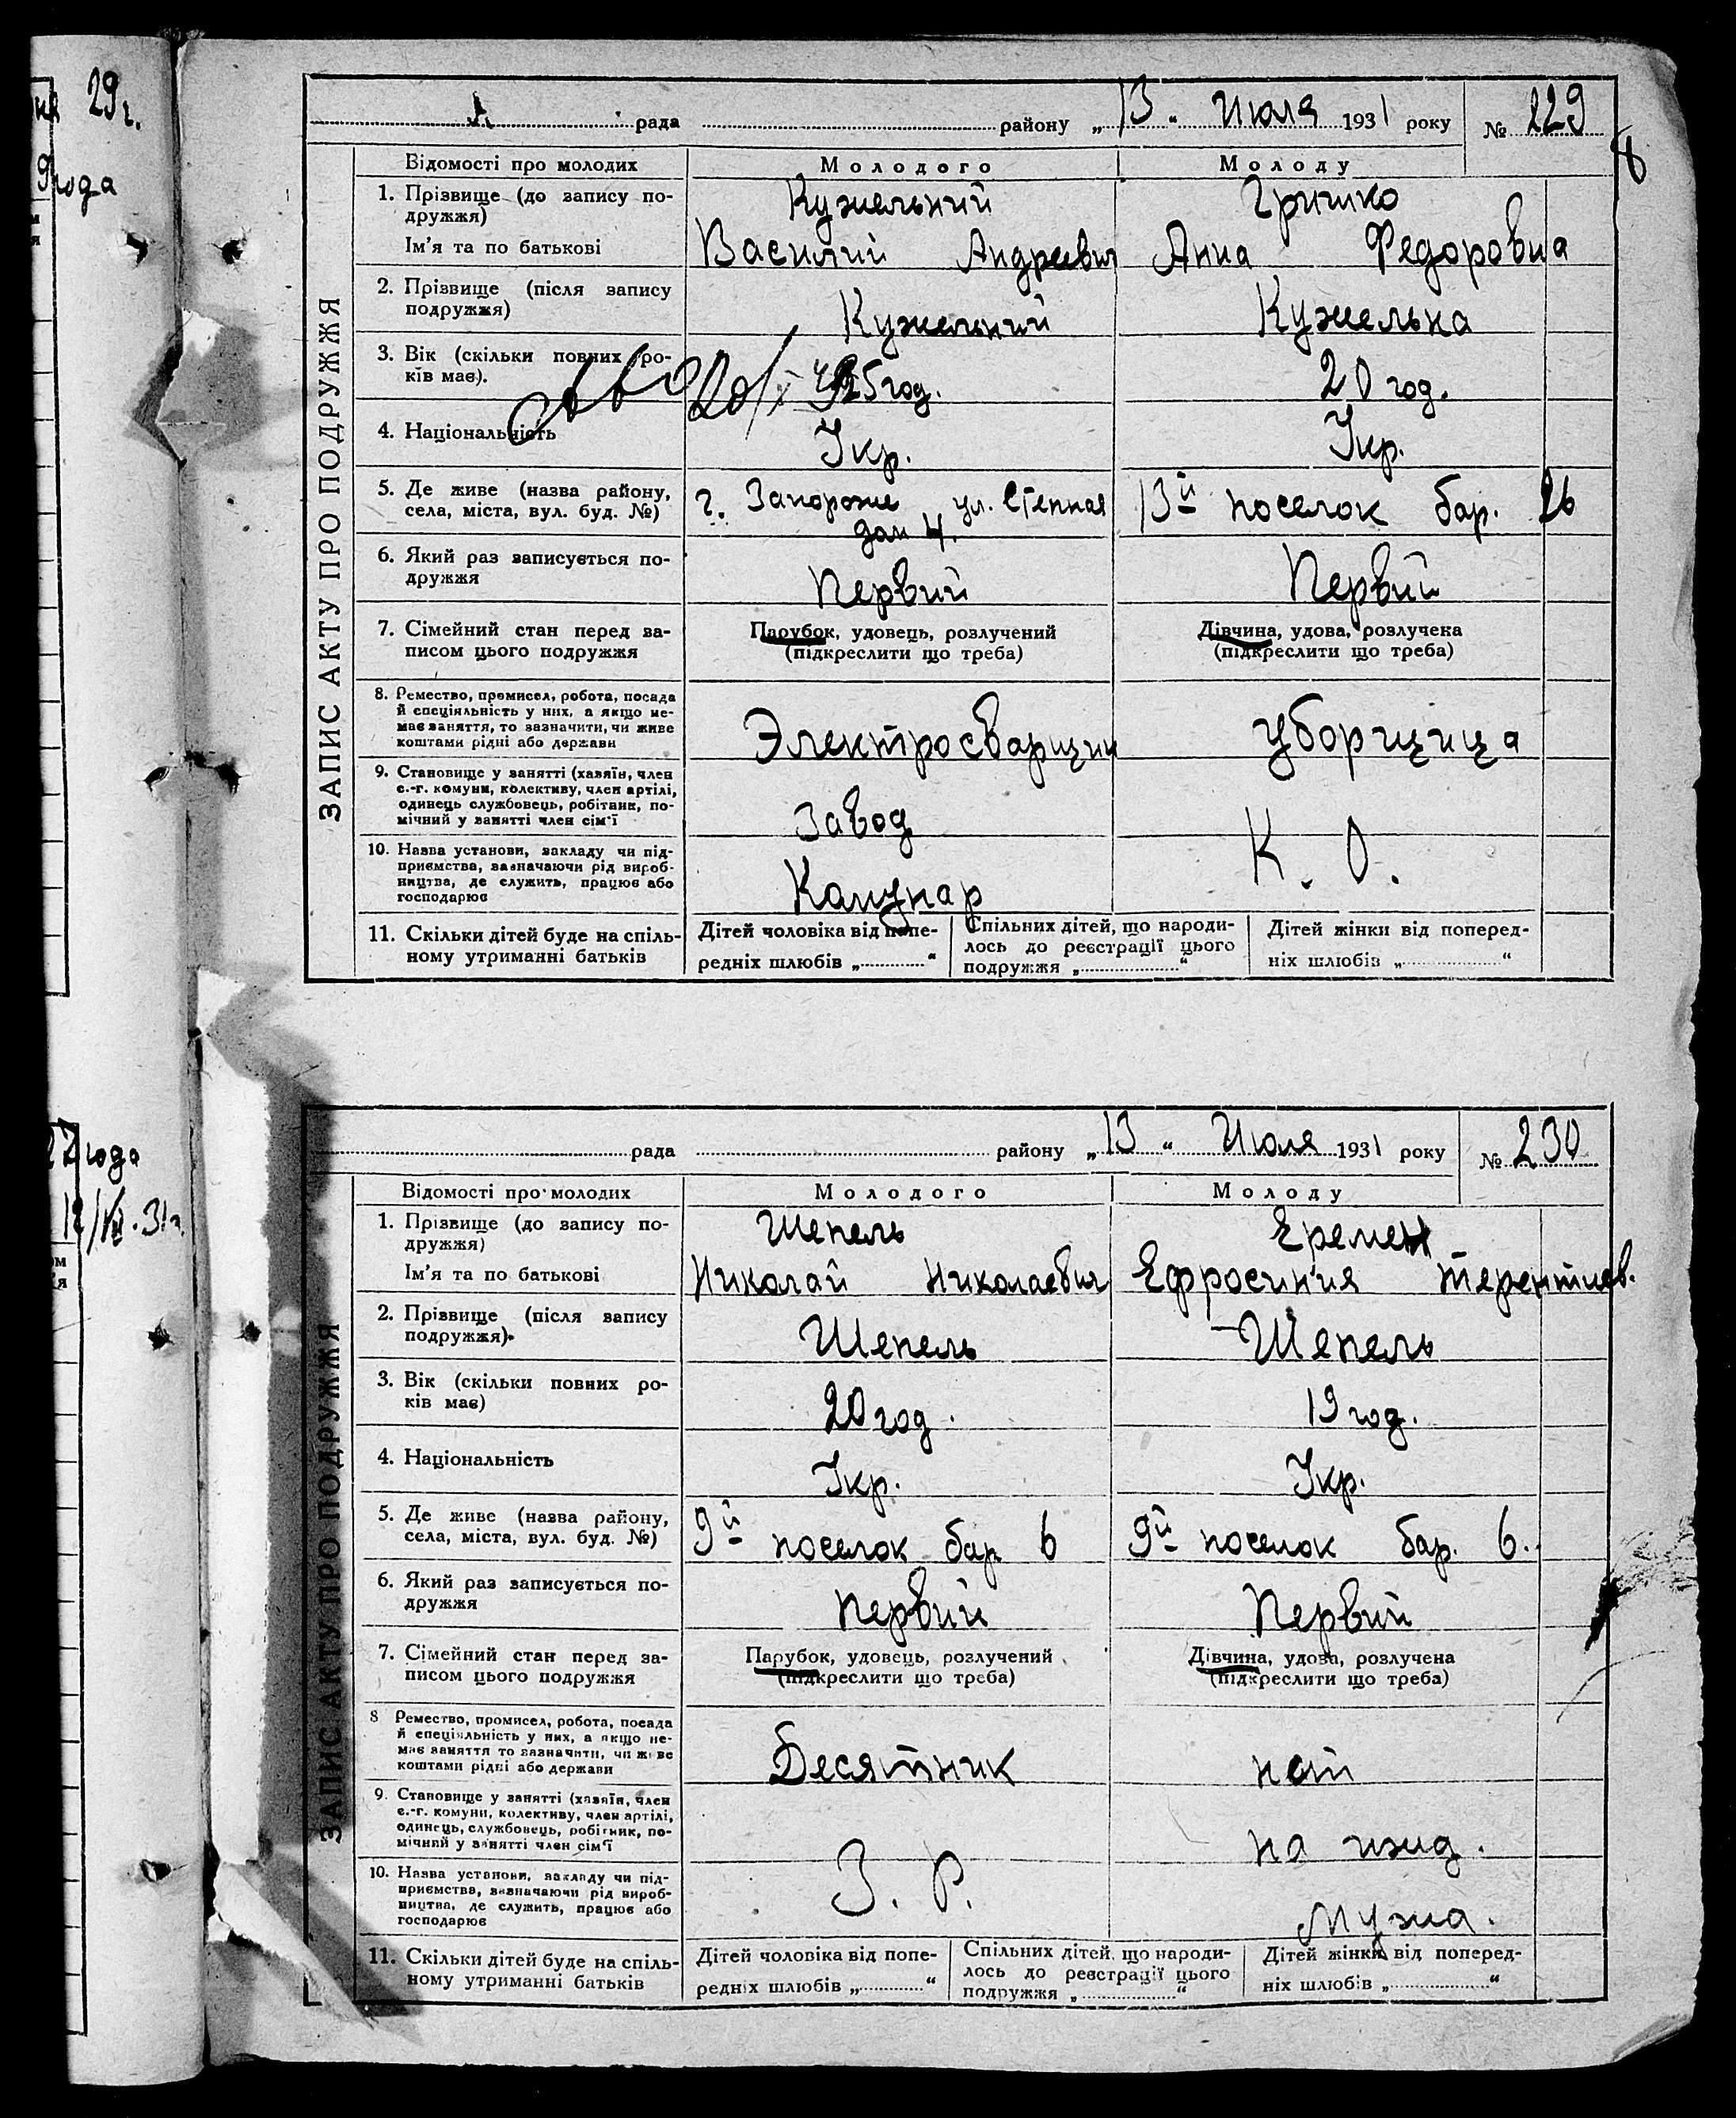 29г.
9 года
рада району „13" Июля 1931 року № 229
8
ЗАПИС АКТУ ПРО ПОДРУЖЖЯ
Відомості про молодих Молодого Молоду
1. Прізвище (до запису по-
дружжя)
Кужельний Гришко
Ім'я та по батькові Василий Андреевич Анна Федоровна
2. Прізвище (після запису
подружжя)
Кужельний Кужельна
3. Вік (скільки повних ро-
ків має).
25 год. 20 год.
4. Національність Укр. Укр.
5. Де живе (назва району,
села, міста, вул. буд. №)
г. Запороже ул. Степная
дом 4.
13й поселок бар. 26
6. Який раз записується по-
дружжя
Первий Первий
7. Сімейний стан перед за-
писом цього подружжя
Парубок, удовець, розлучений
(підкреслити що треба)
Дівчина, удова, розлучена
(підкреслити що треба)
8. Ремество, промисел, робота, посада
й спеціяльність у них, а якщо не-
має заняття, то зазначити, чи живе
коштами рідні або держави
Электросварщик уборщица
9. Становище у занятті (хазяїн, член
с.-г. комуни, колективу, член артілі,
одинець службовець, робітник, по-
мічний у занятті член сім'ї
завод
10. Назва установи, закладу чи під-
приємства, зазначаючи рід вироб-
ництва, де служить, працює або
господарює
Комунар К. О.
11. Скільки дітей буде на спіль-
ному утриманні батьків
Дітей чоловіка від попе-
редніх шлюбів „ "
Спільних дітей, що народи-
лось до реєстрації цього
подружжя „ "
Дітей жінки від поперед-
ніх шлюбів „ "
27 года
12/VII.31г.
рада району „13" Июля 1931 року № 230
ЗАПИС АКТУ ПРО ПОДРУЖЖЯ
Відомості про молодих Молодого Молоду
1. Прізвище (до запису по-
дружжя)
Шепель Еремен
Ім'я та по батькові Николай Николаевич Ефросиния Терентиев.
2. Прізвище (після запису
подружжя).
Шепель Шепель
3. Вік (скільки повних ро-
ків має)
20 год. 19 год.
4. Національність Укр. Укр.
5. Де живе (назва району,
села, міста, вул. буд. №)
9й поселок бар. 6 9й поселок бар. 6.
6. Який раз записується по-
дружжя
Первий Первий
7. Сімейний стан перед за-
писом цього подружжя
Парубок, удовець, розлучений
(підкреслити що треба)
Дівчина, удова, розлучена
(підкреслити що треба)
8 Ремество, промисел, робота, посада
й спеціяльність у них, а якщо не-
має заняття то зазначити, чи живе
коштами рідні або держави
Десятник нет
9. Становище у занятті (хазяїн, член
с.-г. комуни, колективу, член артілі,
одинець, службовець, робітник, по-
мічний у занятті член сім'ї
на ижд.
10. Назва установи, закладу чи під-
приємства, зазначаючи рід вироб-
ництва, де служить, працює або
господарює
З. Р. мужа.
11. Скільки дітей буде на спіль-
ному утриманні батьків
Дітей чоловіка від попе-
редніх шлюбів „ "
Спільних дітей, що народи-
лось до реєстрації цього
подружжя „ "
Дітей жінки від поперед-
ніх шлюбів „ "